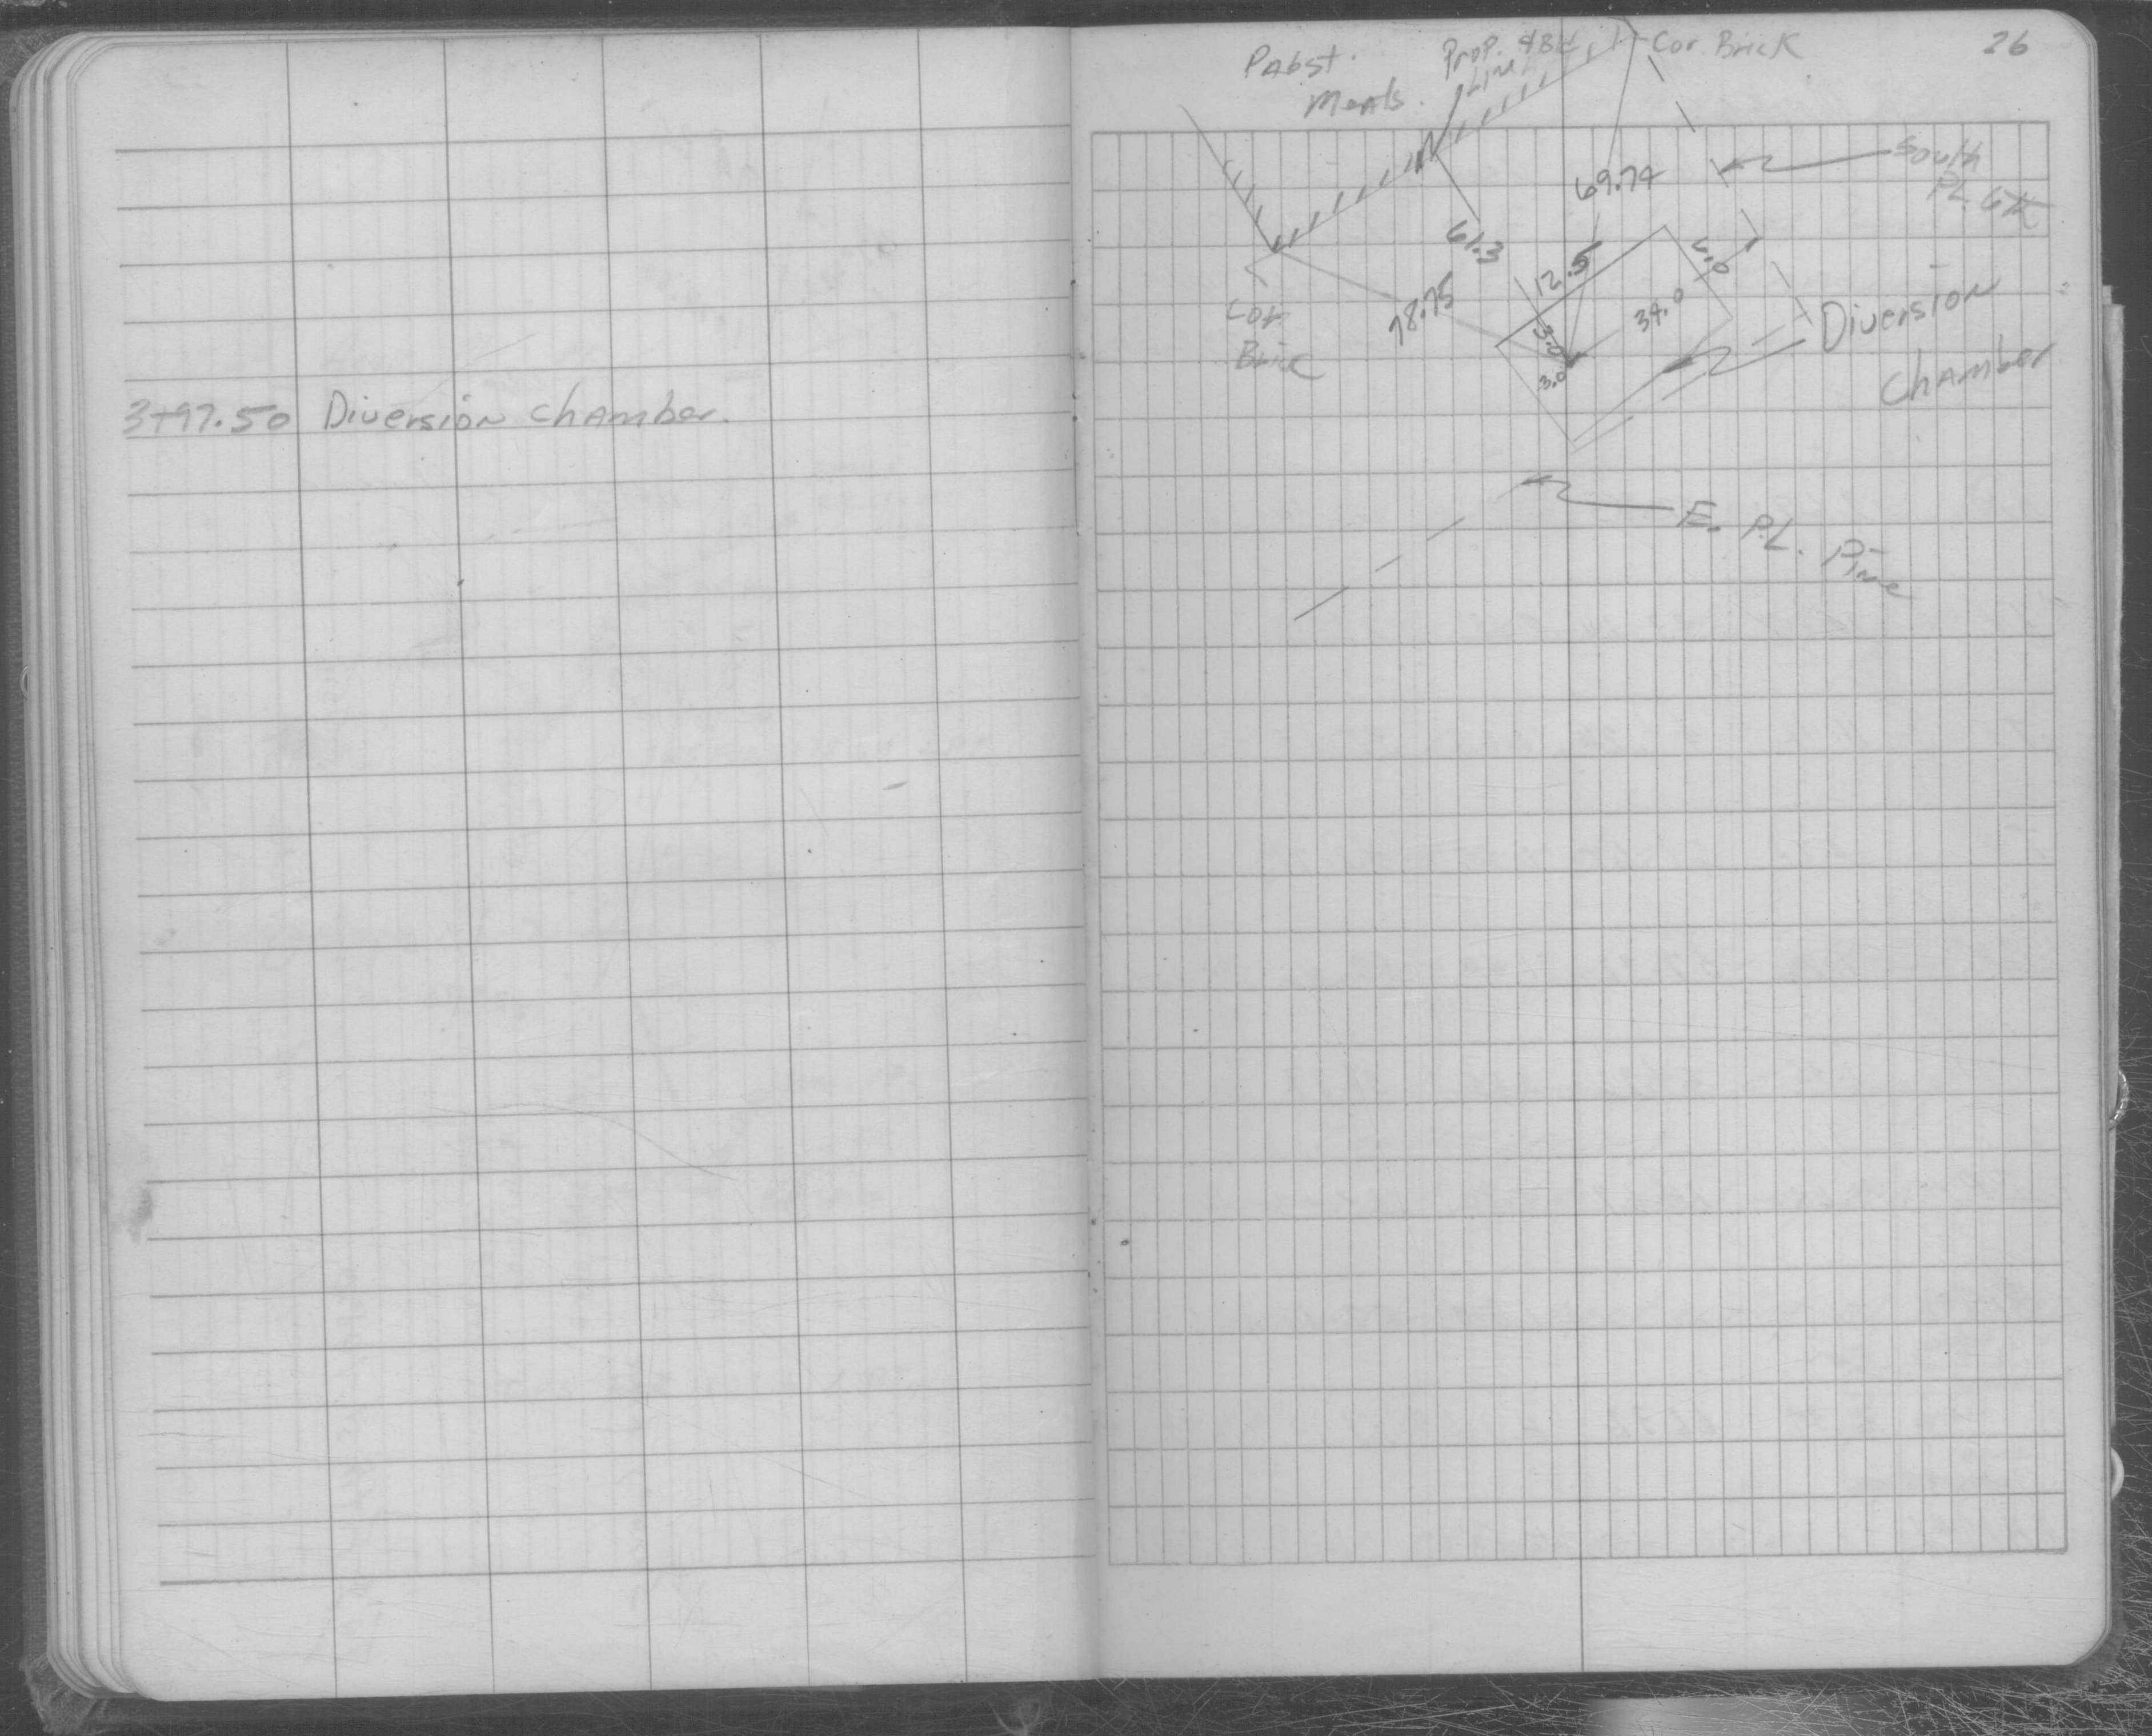 26
Pabst.
Meats.
Prop.
Line
Cor. Brick
69.74
South
P.L. 6th
61.3
12.5
6.0
78.75
34.0
3.0
3.0
Cor
Bric
Diversion
Chamber
3+97.50 Diversion Chamber.
E. P.L. Pine